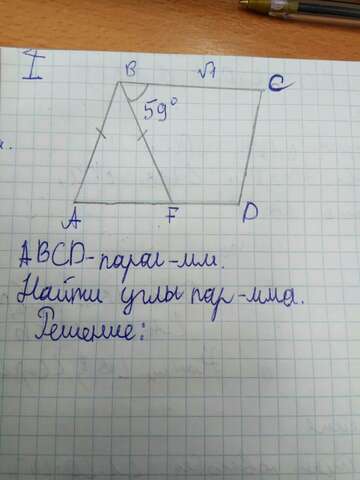 I
B
√1
C
59°
A
F
D
ABCD-парал-мм.
Найти углы пар-мма.
Решение: